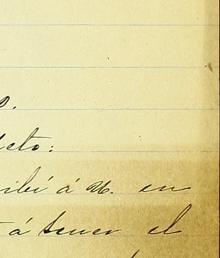 eto:
ribí á U. en
á tener el